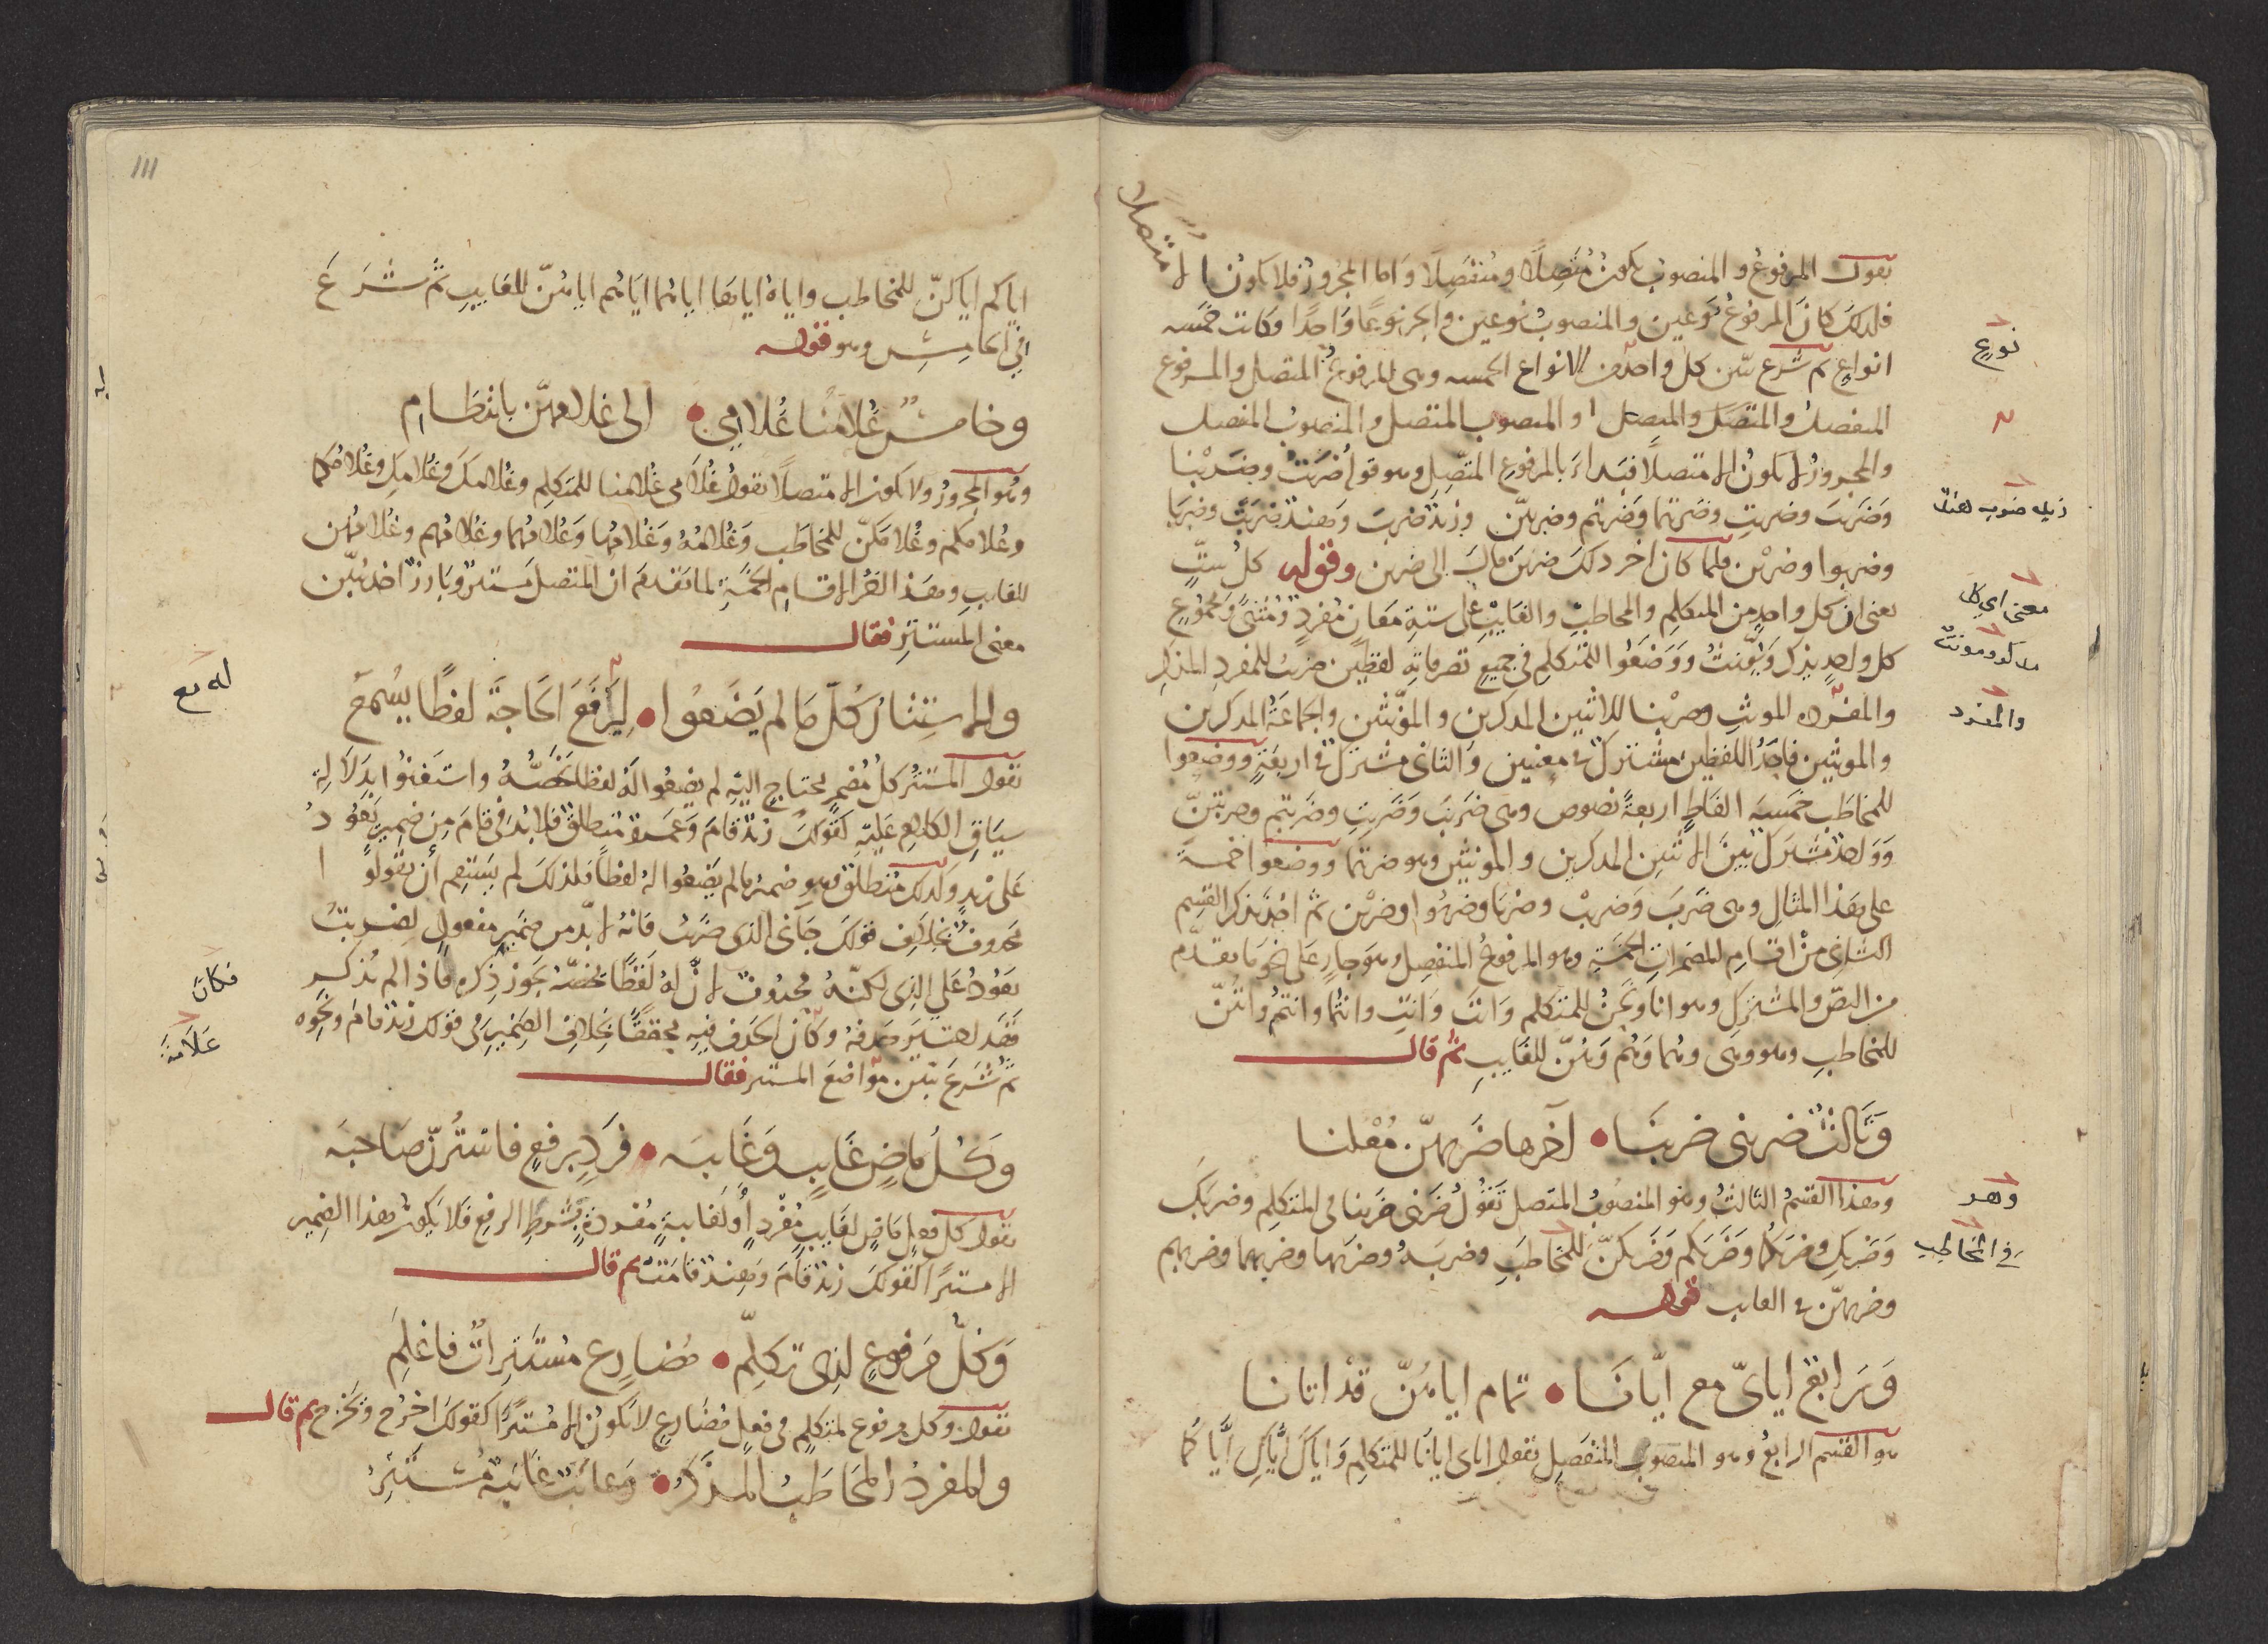 يقول المرفوع والمنصوب يكون متصلا ومنفصلا واما المجرور فلا يكون الا متصلا
فلذلك كان المرفوع نوعين والمنصوب نوعين والجر نوعا واحدا وكانت خمسه
نوع
انواع ثم شرع يبين كل واحد من الانواع الخمسه وهى المرفوع المتصل والمرفوع
المنفصل والمنصوب المتصل والمنصوب المنفصل
والمجرور لا يكون الا متصلا فبدا بالمرفوع المتصل وهو قوله ضربت وضربنا
وضربت وضربت وضربتما وضربتم وضربتن وزيد ضرب وهند ضربت وضربا
وضربوا وضربن فلما كان اخر ذلك ضربن قال الى ضربن وقوله كل ست
يعنى ان كل واحد من المتكلم والمخاطب والغايب على ستة معان مفرد ومثنى ومجموع
كل واحد يذكر ويؤنث ووضعوا للمتكلم فى جميع تصرفاته لفظين ضربت للمفرد المذكر
والمفرد المونث وضربنا للاثنين المذكرين والمؤنثين والجماعة المذكرين
والمفرد
والمونثين فاحد اللفظين مشترك فى معنيين والثانى مشترك فى اربعة ووضعوا
للمخاطب خمسة الفاظ اربعة نصوص وهى ضربت وضربت وضربتم وضربتن
وواحد مشترك بين الاثنين المذكرين والمونثين وهو ضربتما ووضعوا خمسة
على هذا المثال وهى ضرب وضربت وضربا وضربوا وضربن ثم اخذ يذكر القسم
الثانى من اقسام المضمرات الخمسة وهو المرفوع المنفصل وهو جار على نحو ما تقدم
من النص والمشترك وهو انا ونحن للمتكلم وانت وانت وانتما وانتم وانتن
للمخاطب وهو وهى وهما وهم وهن للغايب ثم قال
وثالث ضربنى ضربنا • آخرها ضربهن معلنا
وهذا القسم الثالث وهو المنصوب المتصل تقول ضربنى ضربنا فى المتكلم وضربك
وهو
وضربك وضربكما وضربكم وضربكن للمخاطب وضربه وضربها وضربهما وضربهم
فى المخاطب
وضربهن فى الغايب قوله
ورابع اياى مع ايانا • تمام اياهن قد اتانا
هو القسم الرابع وهو المنصوب المنفصل تقول اياى ايانا للمتكلم واياك اياك اياكما
111
اياكم اياكن للمخاطب واياه اياها اياهما اياهم اياهن للغايب ثم شرع
فى الخامس وهو قوله
وخامس غلامنا غلامى • الى غلامهن بانتظام
وهو المجرور ولا يكون الا متصلا تقول غلامى غلامنا للمتكلم وغلامك وغلامك وغلامكما
وغلامكم وغلامكن للمخاطب وغلامه وغلامها وغلامهما وغلامهم وغلامهن
للغايب وهذا اخر الاقسام الخمسة لما تقدم ان المتصل مستتر وبارز اخذ يبين
معنى المستتر فقال
والاستتار كل ما لم يضعوا • ليرفع الحاجة لفظا يسمع
تقول المستتر كل مضمر يحتاج اليه لم يضعوا له لفظا يخصه واستغنوا بدلالة
سياق الكلام عليه كقولك زيد قام وعمرو منطلق فلا بد فى قام من ضمير يعود
على زيد وكذلك منطلق فهو ضمير ما لم يضعوا له لفظا فلذلك لم يستقم ان يقولوا
محذوف بخلاف قولك جانى الذى ضربت فانه لا بد من ضمير مفعول لضربت
يعود على الذى لكنه محذوف لان له لفظا يخصه يجوز ذكره فاذا لم يذكر
فكان
فقد تعين حذفه وكان الحذف فيه محققا بخلاف الضمير فى قولك زيد قام ونحوه
علامة
ثم شرع يبين مواضع المستتر فقال
وكل ماض غايب وغايبه • فرد برفع فاسترن صاحبه
تقول كل فعل ماض لغايب مفرد او لغايبة مفردة بشرط الرفع فلا يكون هذا الضمير
الا مستترا كقولك زيد قام وهند قامت ثم قال
وكل مرفوع لذى تكلم • مضارع مستترات فاعلم
تقول وكل مرفوع لمتكلم فى فعل مضارع لا يكون الا مستترا كقولك اخرج ونخرج ثم قال
والمفرد المخاطب المذكر • وغايب غايبة مستتر